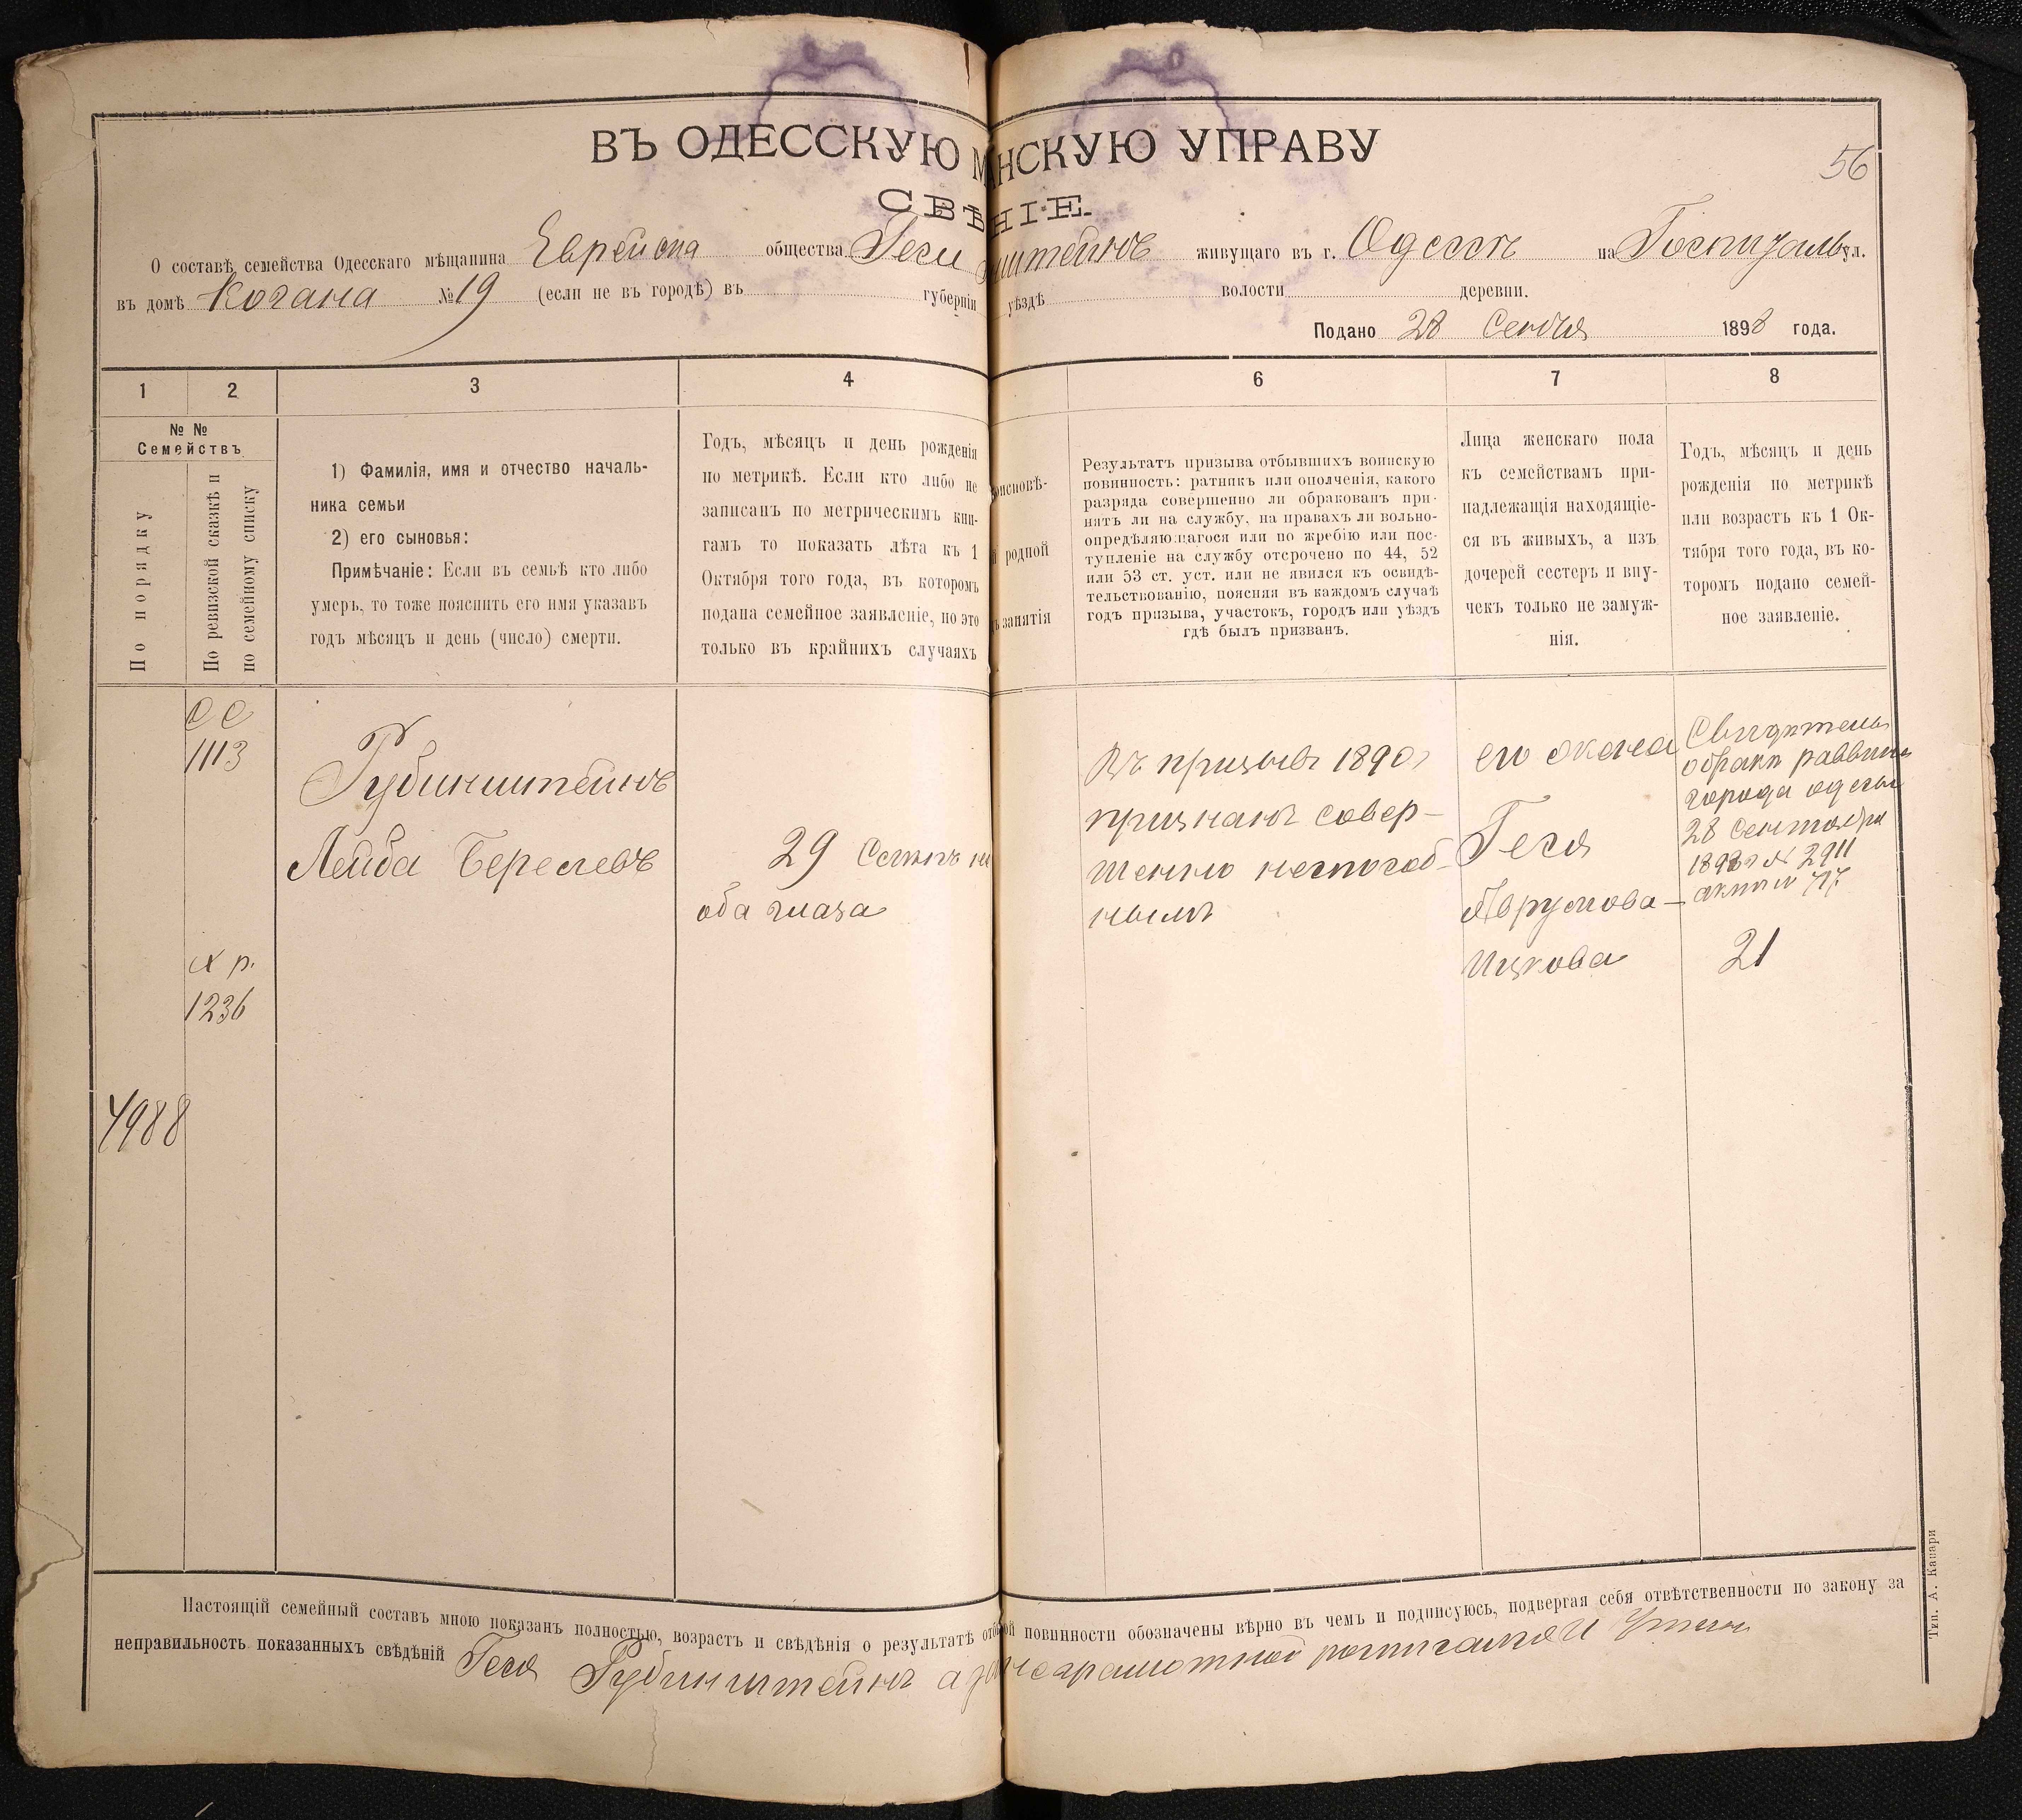 56
ВЪ ОДЕССКУЮ М НСКУЮ УПРАВУ
СВѢ НІЕ.
О составѣ семейства Одесскаго мѣщанина Еврейска общества Геси штейнъ живущаго въ г. Одессѣ на Госпитальн ул.
въ домѣ Когана № 19 (если не въ городѣ) въ губерніи уѣздѣ волости деревни.
Подано 28 Сентбя 1898 года.
1 2 3 4 6 7 8
№ №
Семействъ
По порядку
По ревизской сказкѣ и
по семейному списку
1) Фамилія, имя и отчество началь-
ника семьи
2) его сыновья:
Примѣчаніе: Если въ семьѣ кто либо
умеръ, то тоже пояснить его имя указавъ
годъ мѣсяцъ и день (число) смерти.
Годъ, мѣсяцъ и день рожденія
по метрикѣ. Если кто либо не
записанъ по метрическимъ кни-
гамъ то показать лѣта къ 1
Октября того года, въ которомъ
подана семейное заявленіе, но это
только въ крайнихъ случаяхъ
оисповѣ-
й родной
занятія
Результатъ призыва отбывшихъ воинскую
повинность: ратникъ или ополченія, какого
разряда совершенно ли обракованъ при-
нятъ ли на службу, на правахъ ли вольно-
опредѣляющагося или по жребію или пос-
тупленіе на службу отсрочено по 44, 52
или 53 ст. уст. или не явился къ освидѣ-
тельствованію, поясняя въ каждомъ случаѣ
годъ призыва, участокъ, городъ или уѣздъ
гдѣ былъ призванъ.
Лица женскаго пола
къ семействамъ при-
надлежащія находящіе-
ся въ живыхъ, а изъ
дочерей сестеръ и вну-
чекъ только не замуж-
нія.
Годъ, мѣсяцъ и день
рожденія по метрикѣ
или возрастъ къ 1 Ок-
тября того года, въ ко-
торомъ подано семей-
ное заявленіе.
С С
1113
Х р.
1236
4988
Рубинштейнъ
Лейба Береневъ
29 Слѣпъ на
оба глаза
Въ призывъ 1890 г
признанъ совер-
шенно неспособ-
нымъ
его жена
Геся
Аврумова-
Ицкова
Свидѣтель
о бракѣ раввина
города одессы
28 сентября
1898 г № 2911
актъ № 717
21
Настоящій семейный составъ мною показанъ полностью, возрастъ и свѣдѣнія о результатѣ отб ой повинности обозначены вѣрно въ чемъ и подписуюсь, подвергая себя отвѣтственности по закону за
неправильность показанныхъ свѣдѣній Геся Рубинштейнъ а за неграмотной росписался
Тип. А. Канари